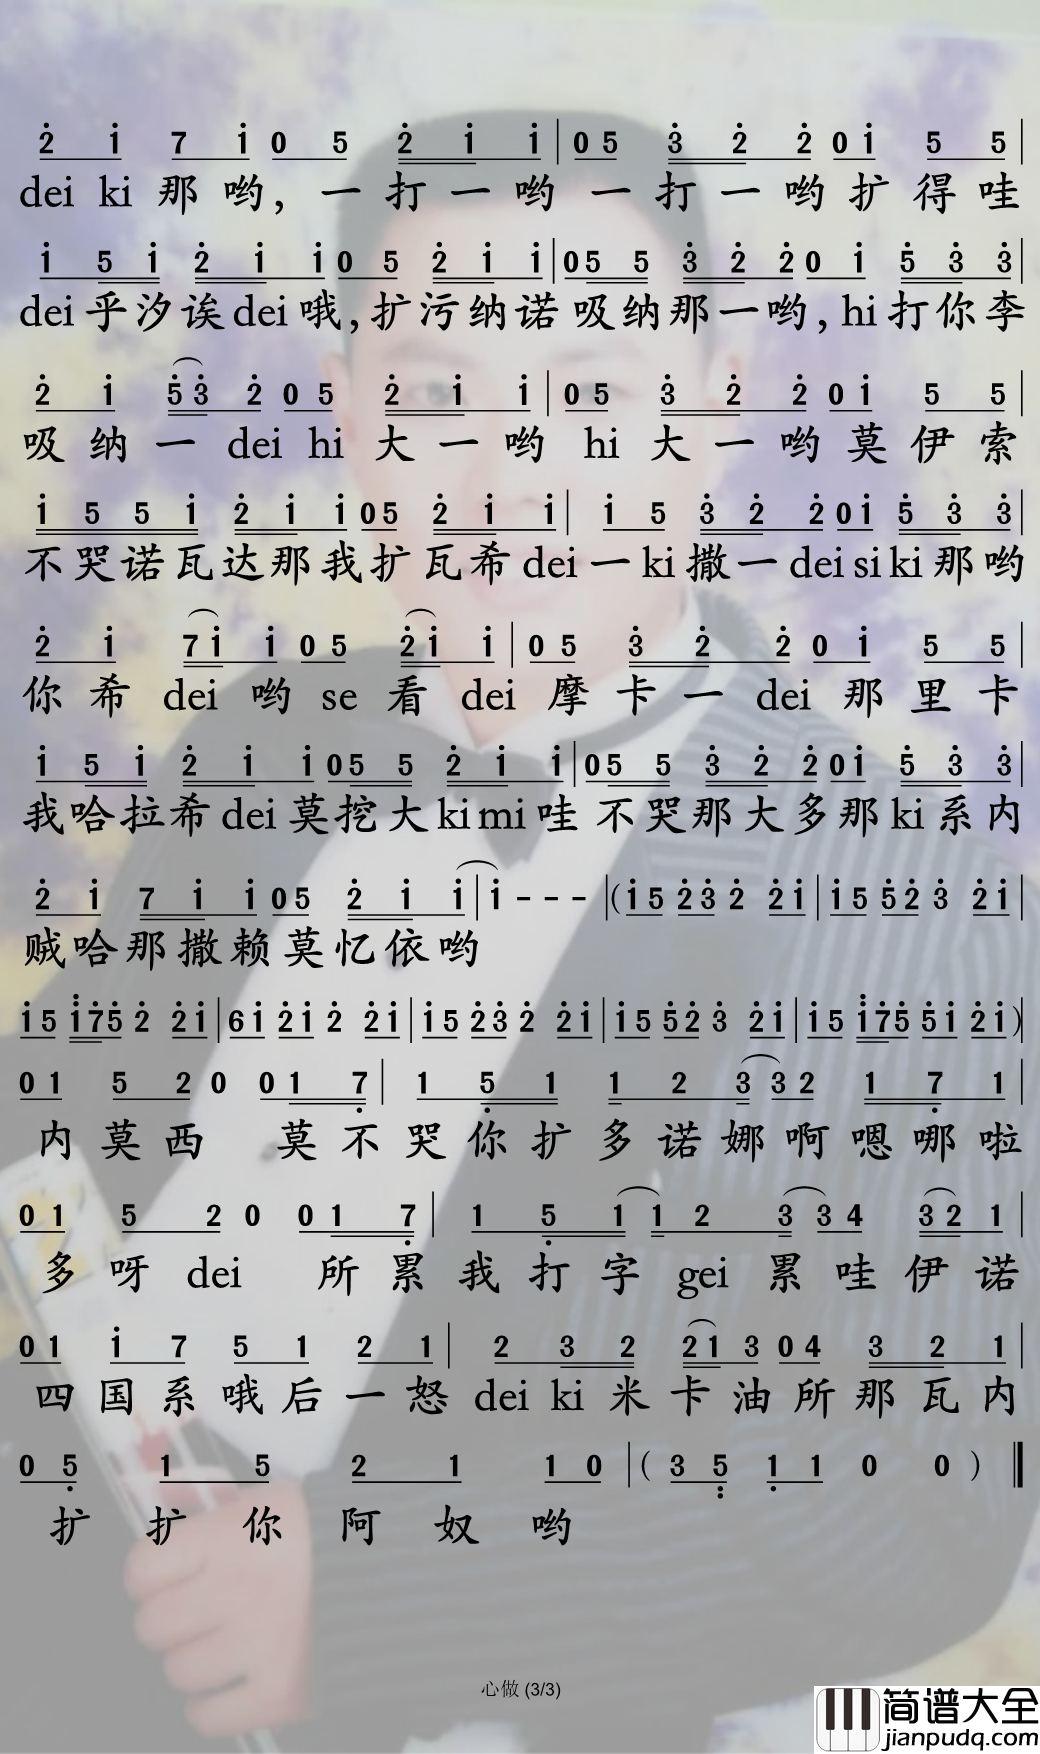 2 1 7 1 0 5 2 1 1 | 0 5 3 2 2 0 1 5 5 |
dei ki 那 哟, 一 打 一 哟 一 打 一 哟 扩 得 哇
1 5 1 2 1 1 0 5 2 1 1 | 0 5 5 3 2 2 0 1 5 3 3 |
dei 乎 汐 诶 dei 哦, 扩 污 纳 诺 吸 纳 那 一 哟, hi 打 你 李
2 1 5 3 2 0 5 2 1 1 | 0 5 3 2 2 0 1 5 5 |
吸 纳 一 dei hi 大 一 哟 hi 大 一 哟 莫 伊 索
1 5 5 1 2 1 1 0 5 2 1 1 | 1 5 3 2 2 0 1 5 3 3 |
不 哭 诺 瓦 达 那 我 扩 瓦 希 dei 一 ki 撒 一 dei si ki 那 哟
2 1 7 1 1 0 5 2 1 1 | 0 5 3 2 2 0 1 5 5 |
你 希 dei 哟 se 看 dei 摩 卡 一 dei 那 里 卡
1 5 1 2 1 1 0 5 5 2 1 1 | 0 5 5 3 2 2 0 1 5 3 3 |
我 哈 拉 希 dei 莫 挖 大 ki mi 哇 不 哭 那 大 多 那 ki 系 内
2 1 7 1 1 0 5 2 1 1 | 1 - - - | ( 1 5 2 3 2 2 1 | 1 5 5 2 3 2 1 |
贼 哈 那 撒 赖 莫 忆 依 哟
1 5 1 7 5 2 2 1 | 6 1 2 1 2 2 1 | 1 5 2 3 2 2 1 | 1 5 5 2 3 2 1 | 1 5 1 7 5 5 1 2 1 ) |
0 1 5 2 0 0 1 7 | 1 5 1 1 2 3 3 2 1 7 1 |
内 莫 西 莫 不 哭 你 扩 多 诺 娜 啊 嗯 哪 啦
0 1 5 2 0 0 1 7 | 1 5 1 1 2 3 3 4 3 2 1 |
多 呀 dei 所 累 我 打 字 gei 累 哇 伊 诺
0 1 1 7 5 1 2 1 | 2 3 2 2 1 3 0 4 3 2 1 |
四 国 系 哦 后 一 怒 dei ki 米 卡 油 所 那 瓦 内
0 5 1 5 2 1 1 0 | ( 3 5 1 1 0 0 ) ‖
扩 扩 你 阿 奴 哟
心做 (3/3)
简谱大全
jianpudq.com